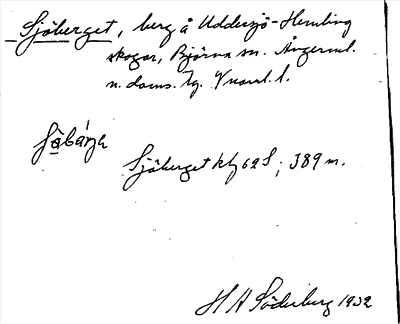 Sjöberget, berg å Uddersjö-Hemling
skogar, Björna sn. Ångerml.
n. doms. tg. Vnorrl. l.
Sjöberget kbl 62 S; 389 m.
H A Söderberg 1932